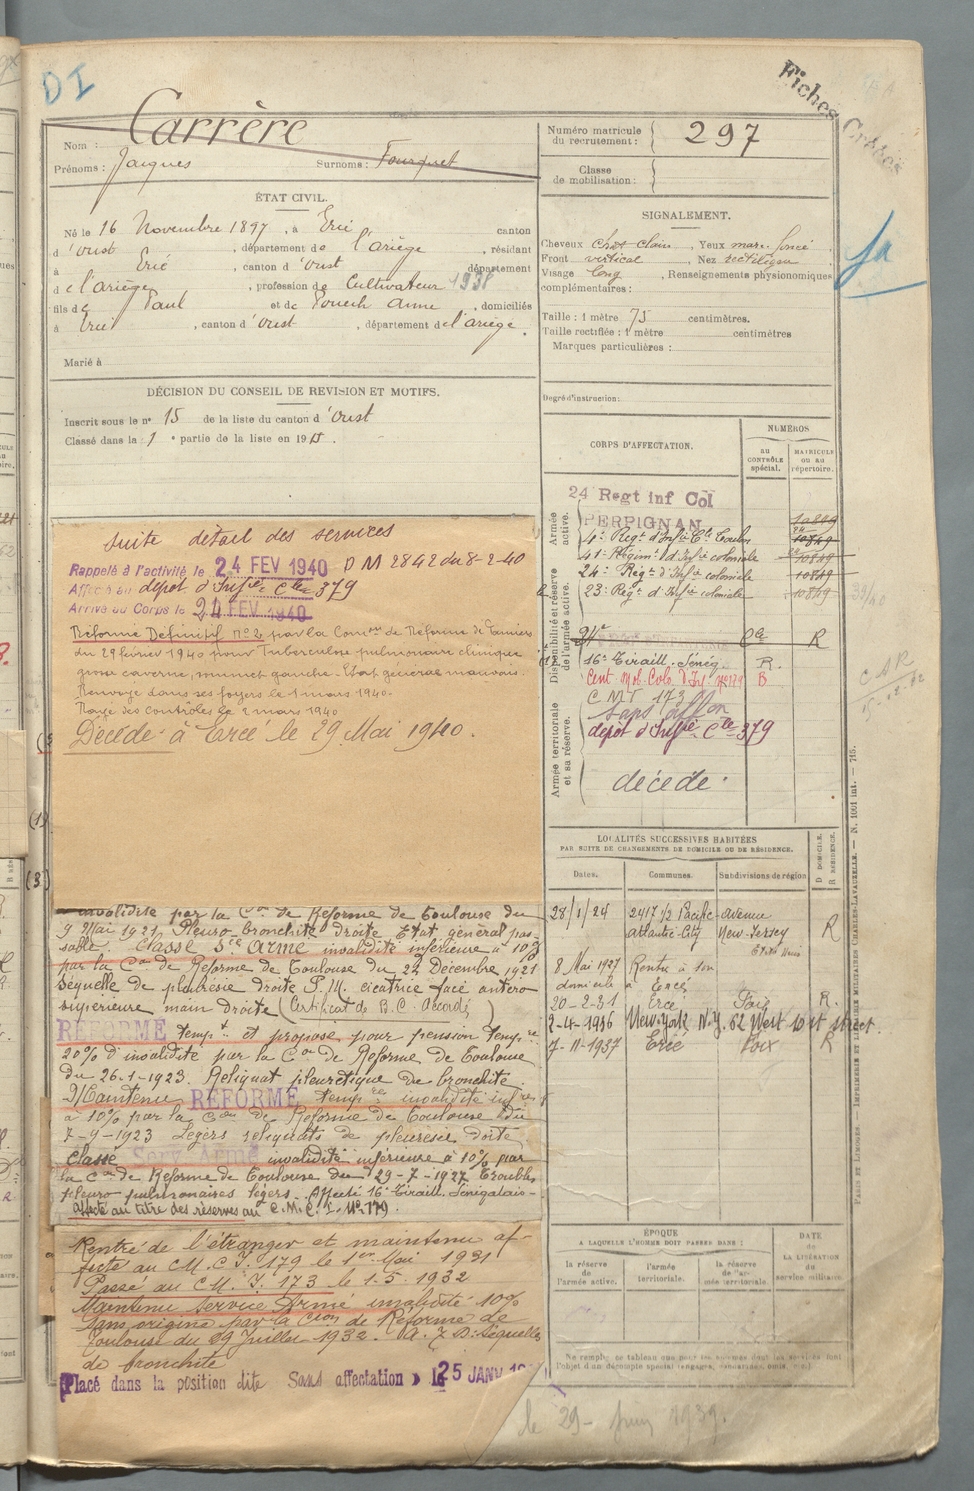 DI
Fiches Créées
Nom : Carrère
Prénoms : Jacques Surnoms : Fourquet
Numéro matricule du recrutement : 297
Classe de mobilisation :
ÉTAT CIVIL.
Né le 16 Novembre 1897, à Ercé canton
d'Oust, département de l'Ariège, résidant
à Ercé, canton d'Oust département
de l'Ariège, profession de Cultivateur 1938
fils de Paul et de Pouech Anne, domiciliés
à Ercé, canton d'Oust, département de l'Ariège.
Marié à
SIGNALEMENT.
Cheveux chat clair, Yeux mar. foncé
Front vertical, Nez rectiligne
Visage long, Renseignements physionomiques
complémentaires :
Taille : 1 mètre 75 centimètres.
Taille rectifiée : 1 mètre centimètres
Marques particulières :
Degré d'instruction :
DÉCISION DU CONSEIL DE REVISION ET MOTIFS.
Inscrit sous le n° 15 de la liste du canton d'Oust
Classé dans la 1e partie de la liste en 19
CORPS D'AFFECTATION.
NUMÉROS
au CONTRÔLE spécial.
MATRICULE ou au répertoire.
Armée active.
24 Regt Inf Col
PERPIGNAN
4e Regt d'Infie Cle Toulon 10849
41e Régimt d'Infie coloniale 10849
24e Regt d'Infie coloniale 10849
23e Regt d'Infie coloniale 10849
Disponibilité et réserve de l'armée active.
16e Tiraill. Sénég. R.
Cent. Mob. Colo. d'Inf. N°179 R
C M I 173
Sans affon
Armée territoriale et sa réserve.
dépôt d'Infie Cle 379
décédé.
suite détail des services
Rappelé à l'activité le 24 FEV 1940 D M 2842 du 8-2-40
Affecté au dépôt d'Infie Cle 379
Arrivé au Corps le 24 FEV 1940
Réformé Définitif N°2 par la Comon de Réforme de Pamiers
du 29 février 1940 pour Tuberculose pulmonaire clinique
grosse caverne, sommet gauche. Etat général mauvais.
Renvoyé dans ses foyers le 1 mars 1940.
Rayé des contrôles le 2 mars 1940
Décédé à Ercé le 29 Mai 1940.
invalidité par la Con de Réforme de Toulouse du
9 Mai 1921, Pleuro-bronchite droite Etat général pas-
sable. Classé Sce Armé invalidité inférieure à 10%
par la Con de Réforme de Toulouse du 22 Décembre 1921
Séquelle de pleurésie droite P.M. cicatrice face antéro
supérieure main droite (Certificat de B.C. Accordé)
REFORME tempre et proposé pour pension tempre
20% d'invalidité par la Con de Réforme de Toulouse
du 26-1-1923. Reliquat pleurétique de bronchite.
Maintenu REFORME tempre invalidité infre
à 10% par la Con de Réforme de Toulouse du
7-9-1923 Légers reliquats de pleurésie droite.
Classé Serv. Armé invalidité inférieure à 10% par
la Con de Réforme de Toulouse du 29-7-1927 Troubles
pleuro pulmonaires légers. Affecté 16e Tiraill. Sénégalais -
affecté au titre des réserves au C.M.C.I. N°179.
Rentré de l'étranger et maintenu af-
fecté au C M. C I. 179 le 1er Mai 1931
Passé au C M. I. 173 le 1.5.1932
Maintenu Service Armé invalidité 10%
sans origine par la Cion de Réforme de
Toulouse du 29 Juillet 1932. Séquelles
de bronchite
Placé dans la position dite « Sans affectation » le 25 JANV
le 29 - juin 1939.
LOCALITÉS SUCCESSIVES HABITÉES
PAR SUITE DE CHANGEMENTS DE DOMICILE OU DE RÉSIDENCE.
Dates. Communes. Subdivisions de région D DOMICILE. R RÉSIDENCE.
28/1/24 2417 1/2 Pacific-Avenue
Atlantic-City New-Jersey R
Etats Unis
8 Mai 1927 Rentré à son
domicile à Ercé
20-2-31 Ercé Foix R.
2-4-1936 New-York N.Y. 62 West 10 st street.
7-11-1937 Ercé Foix R
ÉPOQUE
A LAQUELLE L'HOMME DOIT PASSER DANS :
la réserve de l'armée active.
l'armée territoriale.
la réserve de l'armée territoriale.
DATE de LA LIBÉRATION du service militaire.
Ne remplir ce tableau que pour les hommes dont les services font
l'objet d'un décompte spécial (engagés, omis, etc.)
PARIS ET LIMOGES. — IMPRIMERIE ET LIBRAIRIE MILITAIRES CHARLES-LAVAUZELLE. — N. 1001 int. — 715.